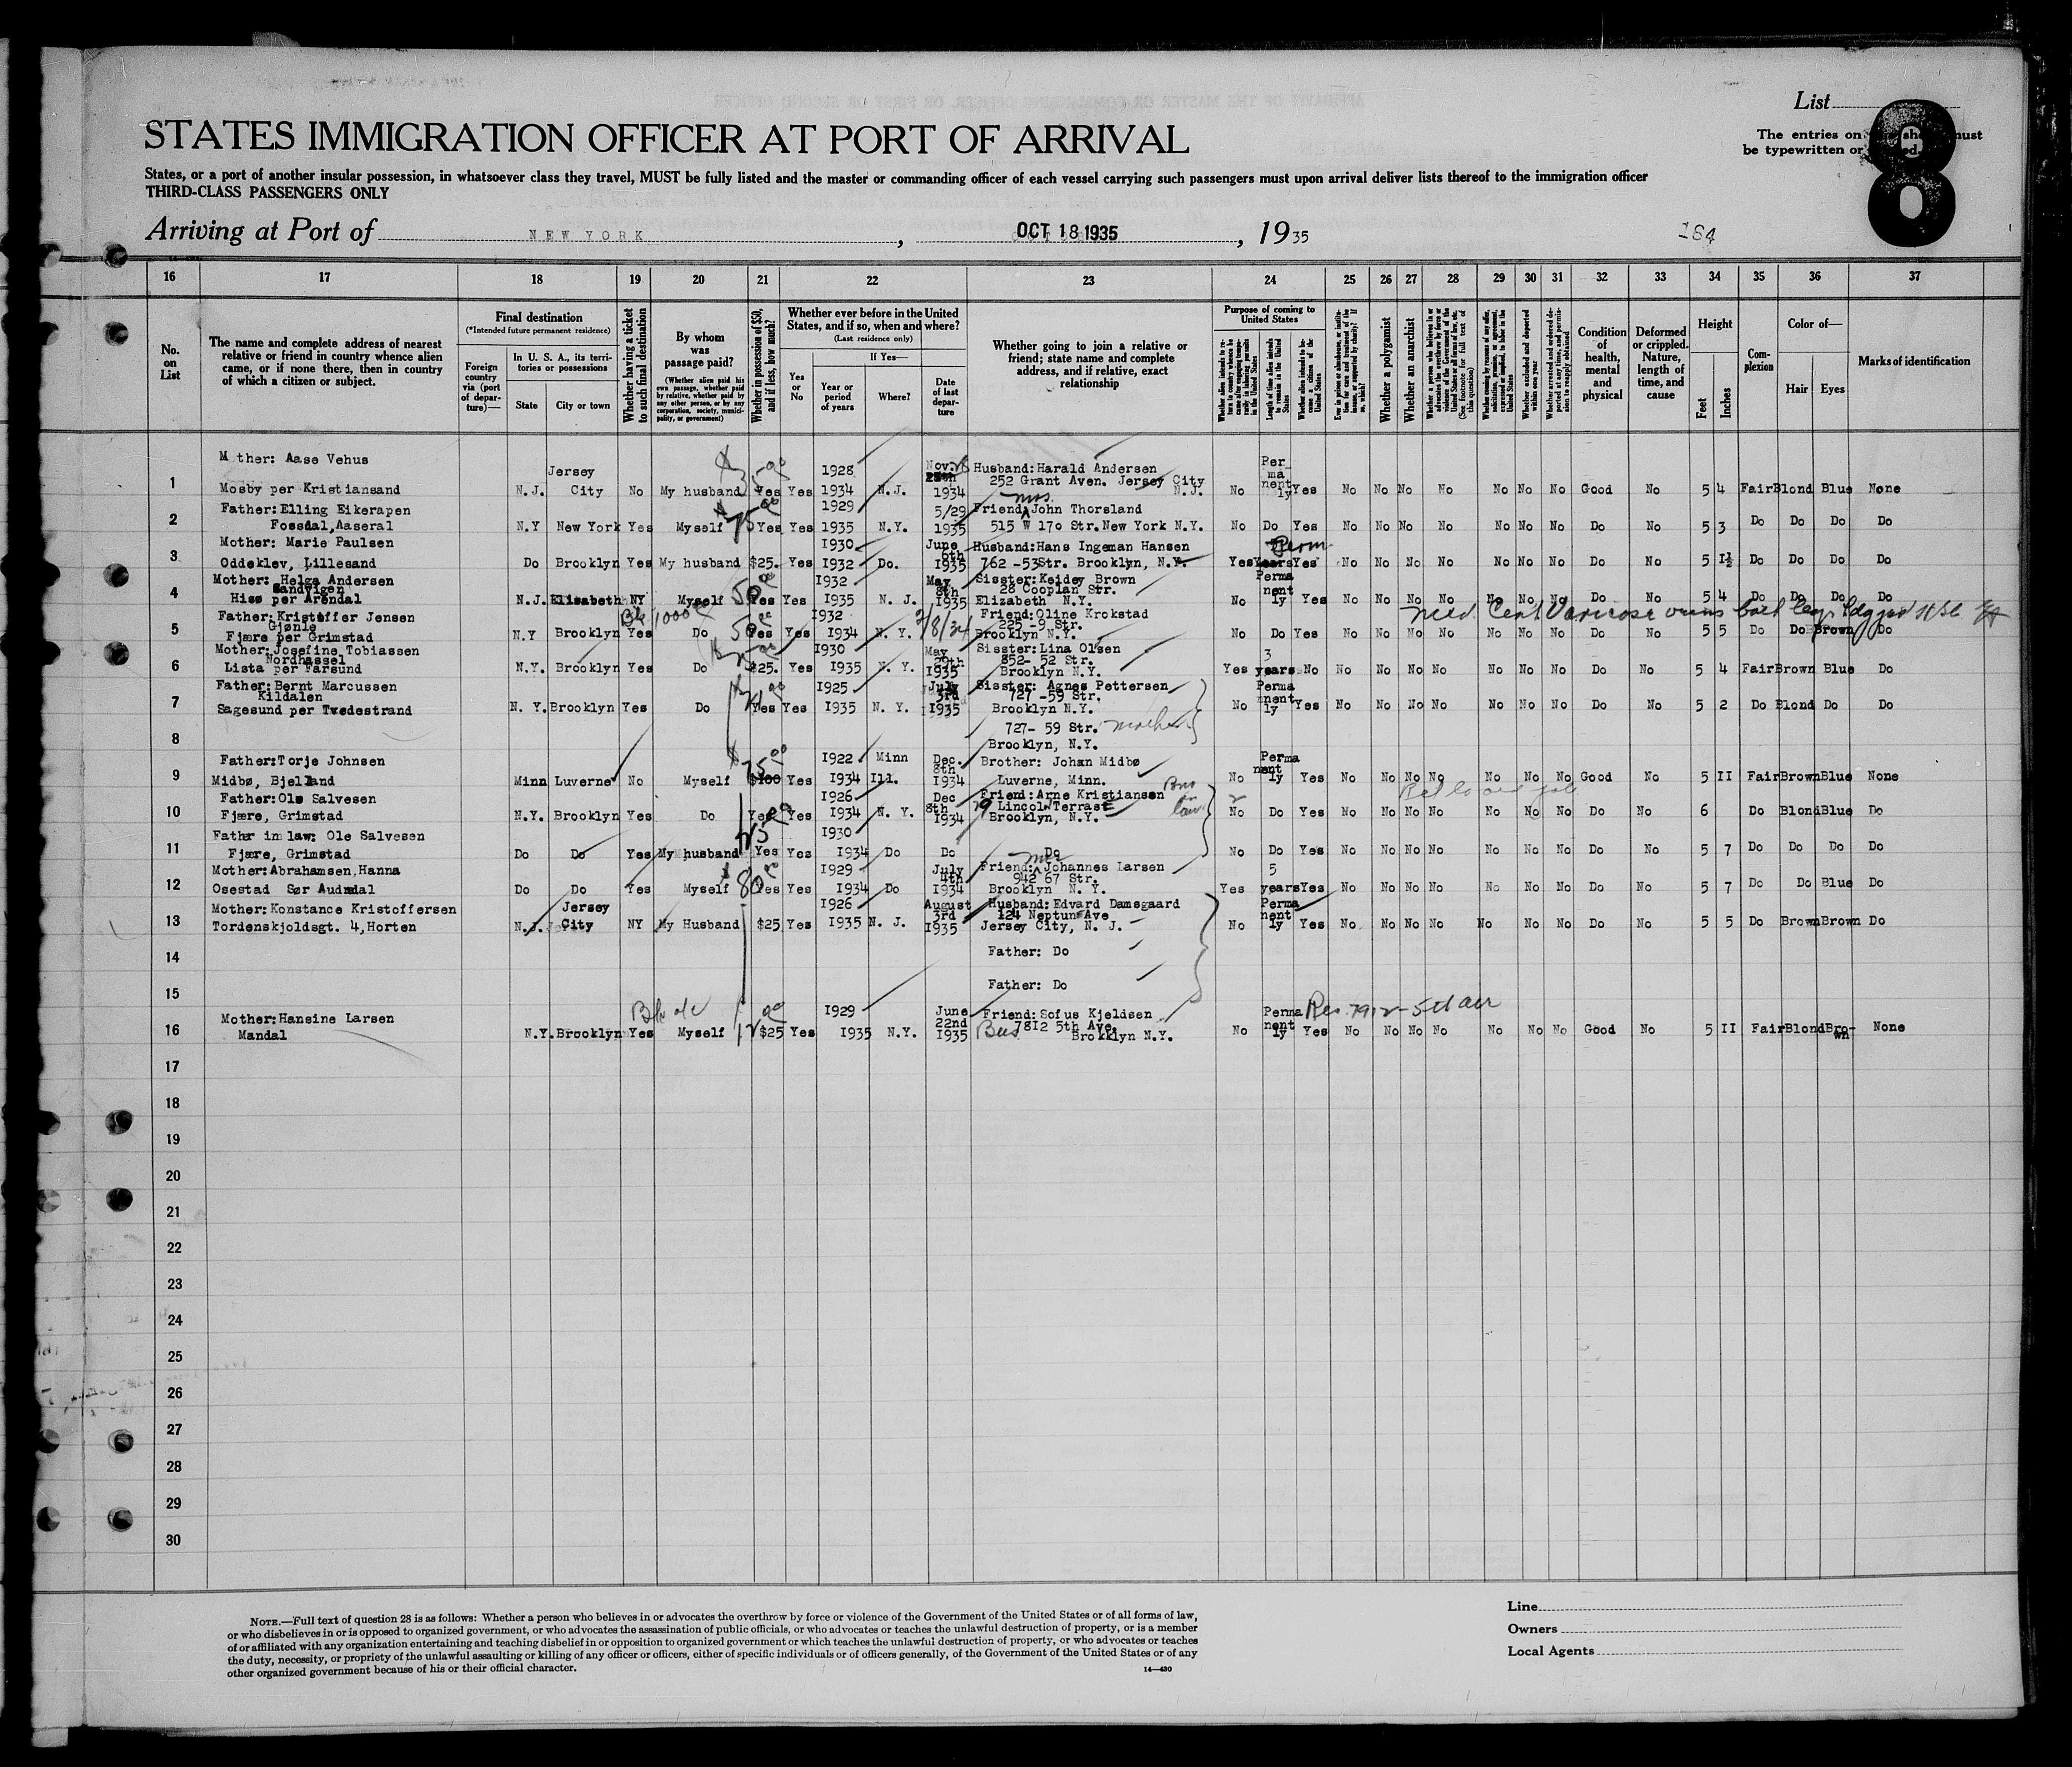 List
8
The entries on this sheet must
be typewritten or printed.
STATES IMMIGRATION OFFICER AT PORT OF ARRIVAL
States, or a port of another insular possession, in whatsoever class they travel, MUST be fully listed and the master or commanding officer of each vessel carrying such passengers must upon arrival deliver lists thereof to the immigration officer
THIRD-CLASS PASSENGERS ONLY
Arriving at Port of NEW YORK, OCT 18 1935, 1935
184
16 17 18 19 20 21 22 23 24 25 26 27 28 29 30 31 32 33 34 35 36 37
No. on List
The name and complete address of nearest relative or friend in country whence alien came, or if none there, then in country of which a citizen or subject.
Final destination
(*Intended future permanent residence)
Foreign country via (port of departure)—
In U. S. A., its territories or possessions
State
City or town
Whether having a ticket to such final destination
By whom was passage paid?
(Whether alien paid his own passage, whether paid by relative, whether paid by any other person, or by any corporation, society, municipality, or government)
Whether in possession of $50, and if less, how much?
Whether ever before in the United States, and if so, when and where?
(Last residence only)
Yes or No
If Yes—
Year or period of years
Where?
Date of last departure
Whether going to join a relative or friend; state name and complete address, and if relative, exact relationship
Purpose of coming to United States
Length of time alien intends to remain in the United States
Whether alien intends to become a citizen of the United States
Whether a polygamist
Whether an anarchist
Condition of health, mental and physical
Deformed or crippled. Nature, length of time, and cause
Height
Feet
Inches
Complexion
Color of—
Hair
Eyes
Marks of identification
1 Mother: Aase Vehus
Mosby per Kristiansand N.J. Jersey City No My husband Yes Yes 1928 1934 N.J. Nov. 1934 Husband: Harald Andersen
252 Grant Aven. Jersey City N.J. No Permanently Yes No No No No No No No Good No 5 4 Fair Blond Blue None
2 Father: Elling Eikerapen
Fossdal, Aaseral N.Y New York Yes Myself 75 Yes Yes 1929 1935 N.Y. 5/29 1935 Friend: Mrs John Thorsland
515 W 170 Str. New York N.Y. No Do Yes No No No No No No No Do No 5 3 Do Do Do Do
3 Mother: Marie Paulsen
Oddeklev, Lillesand Do Brooklyn Yes My husband $25. Yes 1930 1932 Do. June 6th 1935 Husband: Hans Ingeman Hansen
762 -53Str. Brooklyn, N.Y. Yes Perm years Yes No No No No No No No Do No 5 1½ Do Do Do Do
4 Mother: Helga Andersen
Sandvigen
Hisø per Arendal N.J. Elisabeth NY Myself 50 Yes Yes 1932 1935 N. J. May 8th 1935 Sisster: Keidey Brown
28 Cooplan Str.
Elizabeth N.Y. No Permanently Yes No No No No No No No Do No 5 4 Do Do Do Do
Med Cert Varicose veins both legs
5 Father: Kristoffer Jensen
Gjønle
Fjære per Grimstad N.Y Brooklyn Yes Do 50 Yes Yes 1932 1934 N. Y. 2/8/34 Friend: Oline Krokstad
225 -9 Str.
Brooklyn N.Y. No Do Yes No No No No No No No Do No 5 5 Do Do Brown Do
6 Mother: Josefine Tobiassen
Nordhassel
Lista per Farsund N.Y. Brooklyn Yes Do $25. Yes 1930 1935 N. Y. May 29th 1935 Sisster: Lina Olsen
852- 52 Str.
Brooklyn N.Y. Yes 3 years No No No No No No No No Do No 5 4 Fair Brown Blue Do
7 Father: Bernt Marcussen
Kildalen
Sagesund per Tvedestrand N. Y. Brooklyn Yes Do Yes Yes 1925 1935 N. Y. July 3rd 1935 Sisster: Agnes Pettersen
727 -59 Str.
Brooklyn N.Y. No Permanently Yes No No No No No No No Do No 5 2 Do Blond Do Do
8 727- 59 Str. mother
Brooklyn, N.Y.
9 Father: Torje Johnsen
Midbø, Bjelland Minn Luverne No Myself 75 $100 Yes 1922 1934 Minn Ill. Dec. 8th 1934 Brother: Johan Midbø
Luverne, Minn. No Permanently Yes No No No No No No No Good No 5 11 Fair Brown Blue None
10 Father: Ole Salvesen
Fjære, Grimstad N.Y. Brooklyn Yes Do Yes Yes 1926 1934 N. Y. Dec 8th 1934 Friend: Arne Kristiansen
Bro in law
79 Lincoln Terrast
Brooklyn, N.Y. No Do Yes No No No No No No No Do No 6 Do Blond Blue Do
11 Father in law: Ole Salvesen
Fjære, Grimstad Do Do Yes My husband Yes Yes 1930 1934 Do Do Do No Do Yes No No No No No No No Do No 5 7 Do Do Do Do
12 Mother: Abrahamsen, Hanna
Osestad Sør Audndal Do Do Yes Myself $80 Yes Yes 1929 1934 Do July 4th 1934 Friend: Mrs Johannes Larsen
942 67 Str.
Brooklyn N. Y. Yes 5 years Yes No No No No No No No Do No 5 7 Do Do Blue Do
13 Mother: Konstance Kristoffersen
Tordenskjoldsgt. 4, Horten N.J. Jersey City NY My Husband $25 Yes 1926 1935 N. J. August 3rd 1935 Husband: Edvard Damsgaard
124 Neptun Ave
Jersey City, N. J. No Permanently Yes No No No No No No No Do No 5 5 Do Brown Brown Do
14 Father: Do
15 Father: Do
16 Mother: Hansine Larsen
Mandal N.Y. Brooklyn Yes Myself $25 Yes 1929 1935 N.Y. June 22nd 1935 Friend: Sofus Kjeldsen
Bus. 7812 5th Ave.
Brokklyn N.Y. No Permanently Yes No No No No No No No Good No 5 11 Fair Blond Brown None
Res. 7912-5th Ave
17
18
19
20
21
22
23
24
25
26
27
28
29
30
NOTE.—Full text of question 28 is as follows: Whether a person who believes in or advocates the overthrow by force or violence of the Government of the United States or of all forms of law,
or who disbelieves in or is opposed to organized government, or who advocates the assassination of public officials, or who advocates or teaches the unlawful destruction of property, or is a member
of or affiliated with any organization entertaining and teaching disbelief in or opposition to organized government or which teaches the unlawful destruction of property, or who advocates or teaches
the duty, necessity, or propriety of the unlawful assaulting or killing of any officer or officers, either of specific individuals or of officers generally, of the Government of the United States or of any
other organized government because of his or their official character.
14—430
Line
Owners
Local Agents